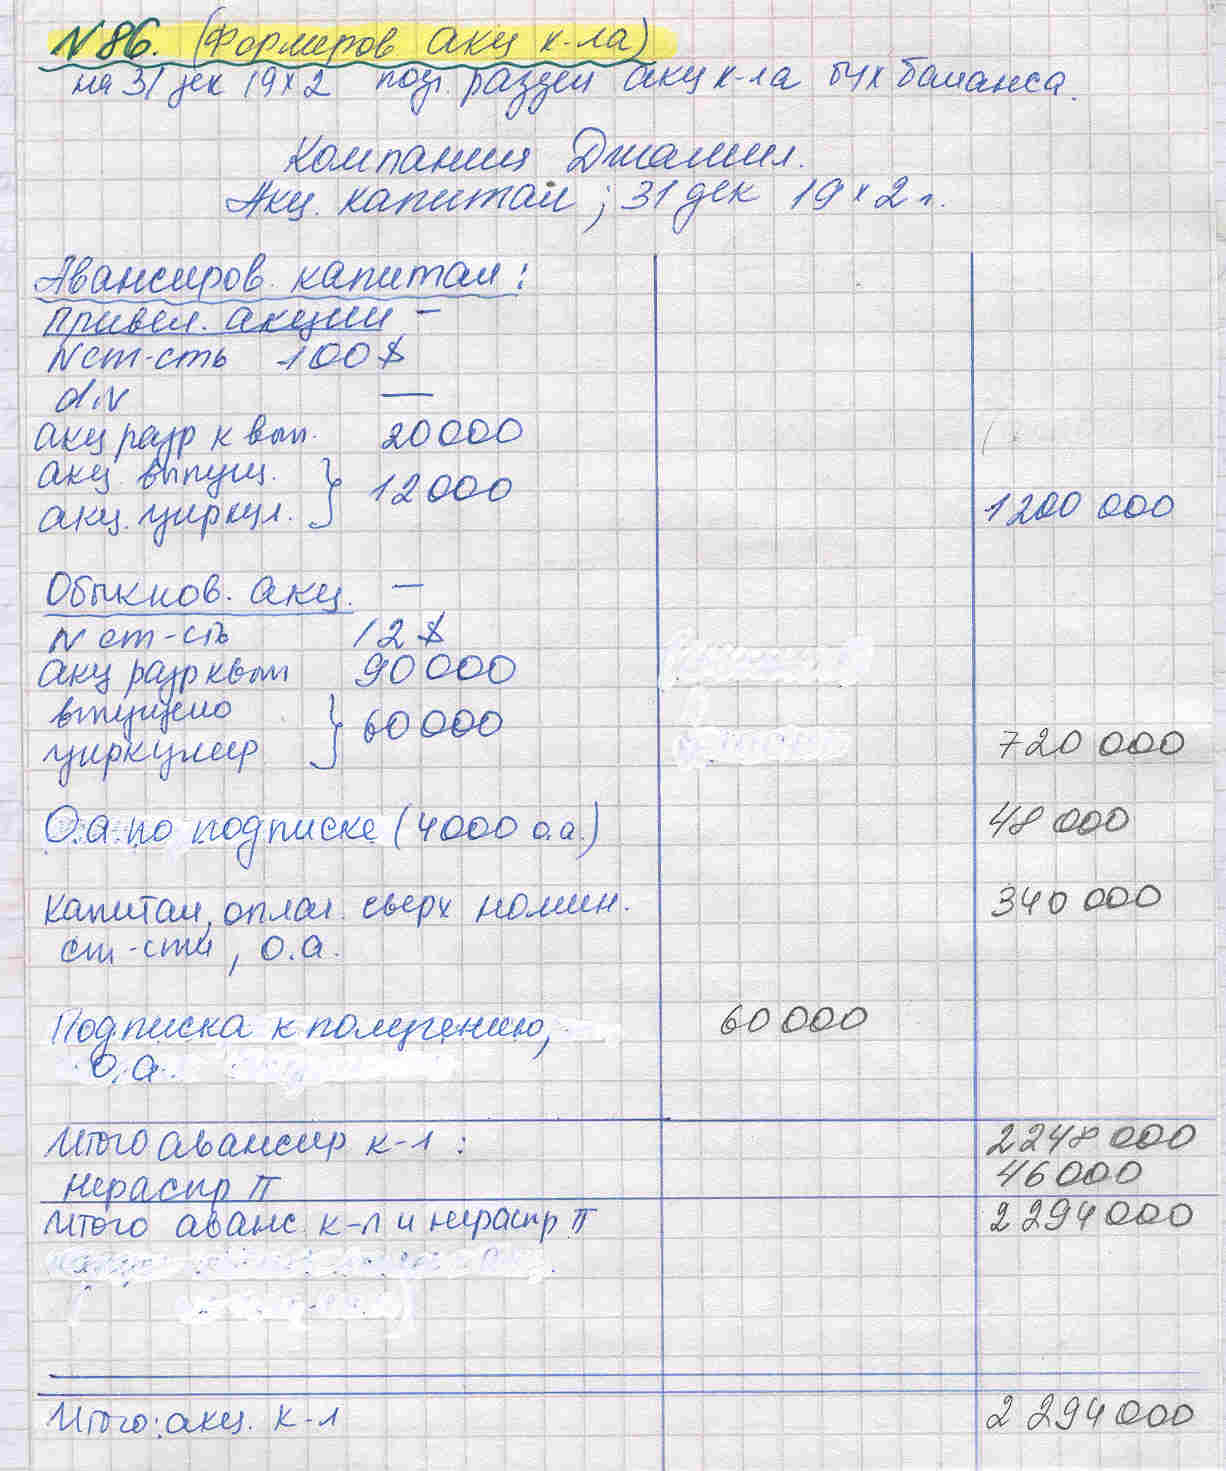 N86. (Формиров акц к-ла)
на 31 дек 19x2 подг. раздел акц к-ла бух баланса.
Компания Джамил.
Акц. капитал; 31 дек 19x2 г.
Авансиров. капитал:
Привел. акции -
N ст-сть 100$
div —
акц разр к вып. 20000
акц. выпущ. } 12000
акц. циркул.
1200 000
Обыкнов. акц. —
N ст-сть 12$
акц разр к вып 90000
выпущено } 60000
циркулир
720 000
О.а. по подписке (4000 о.а.) 48 000
Капитал, оплач. сверх номин. 340 000
ст-сти, о.а.
Подписка к получению, 60000
о.а.
Итого авансир к-л: 2248 000
Нераспр П 46000
Итого аванс. к-л и нераспр П 2 294 000
Итого: акц. к-л 2 294 000